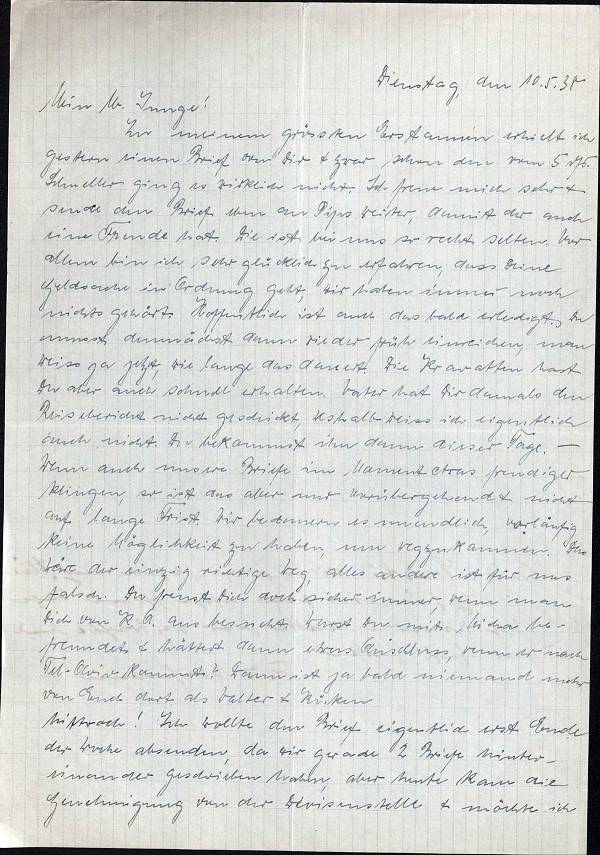 Dienstag, den 10.5.38
Mein lb. Junge!
Zu meinem grössten Erstaunen erhielt ich
gestern einen Brief von Dir & zwar schon den vom 5. ds.
Schneller ging es wirklich nicht. Ich freue mich sehr &
sende den Brief eben an Pips weiter, damit der auch
eine Freude hat. Die ist bei uns so recht selten. Vor
allem bin ich sehr glücklich zu erfahren, dass Deine
Geldsache in Ordnung geht, wir haben immer noch
nichts gehört. Hoffentlich ist auch das bald erledigt. Du
musst demnächst dann wieder früh einreichen, man
weiss ja jetzt, wie lange das dauert. Die Krawatten hast
Du aber auch schnell erhalten. Vater hat Dir damals den
Reisebericht nicht geschickt, weshalb weiss ich eigentlich
auch nicht. Du bekommst ihn dann dieser Tage. —
Wenn auch unsere Briefe im Moment etwas freudiger
klingen, so ist das aber nur vorübergehend & nicht
auf lange Frist. Wir bedauern es unendlich, vorläufig
keine Möglichkeit zu haben, um wegzukommen. Das
wäre der einzig richtige Weg, alles andere ist für uns
falsch. Du freust Dich doch sicher immer, wenn man
Dich von K. A. aus besucht. Warst Du mit be-
freundet & hättest dann etwas Anschluss, wenn er nach
Tel-Aviv kommt? Dann ist ja bald niemand mehr
von Euch dort als Walter &
Mittwoch! Ich wollte den Brief eigentlich erst Ende
der Woche absenden, da wir gerade 2 Briefe hinter-
einander geschrieben haben, aber heute kam die
Genehmigung von der Devisenstelle & möchte ich